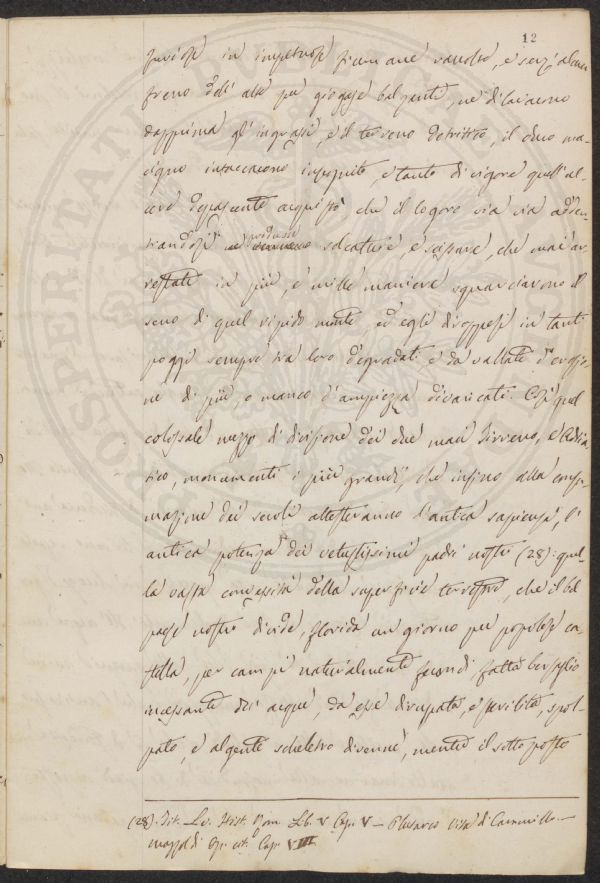 12
in impetuose fiumane raccolte, e senz' alcun
freno dell' alte più giogaje balzanti, ne dilavarono
dapprima gl' ingrassi, e il terreno detritico, il duro ma-
cigno intaccarono in seguito, e tanto di vigore quell' al-
depascente acquistò che il logoro via via
produsse solcature, e scissure, che mai ar-
restate in più, e mille maniere squarciarono il
seno di quel ripido monte, ed egli in tanti
poggi sempre tra loro degradati e da vallate d'
di più, o manco d' ampiezza divaricati. Così quel
colossale mezzo di divisione dei due mari Tirreno, e Adria-
tico, monumenti i più grandi, che infino alla consu-
mazione dei secoli attesteranno l' antica sapienza, l'
antica potenza dei vetustissimi padri nostri (28): quel-
la vasta convessità della superficie terrestre, che il bel
paese nostro divide, florida un giorno per popolose ca-
stella, per campi naturalmente fecondi, fatta bersaglio
incessante dell' acque, da esse dirupata, e sterilita, spol-
pato, e algente scheletro divenne, mentre il sottoposto
(28). Tit. Liv. Hist. Rom. Lib. V Cap. V – Plutarco Vita di Cammillo –
Mazzoldi Op. cit. Cap. VIII
PROSPERITATI PUBLICAE